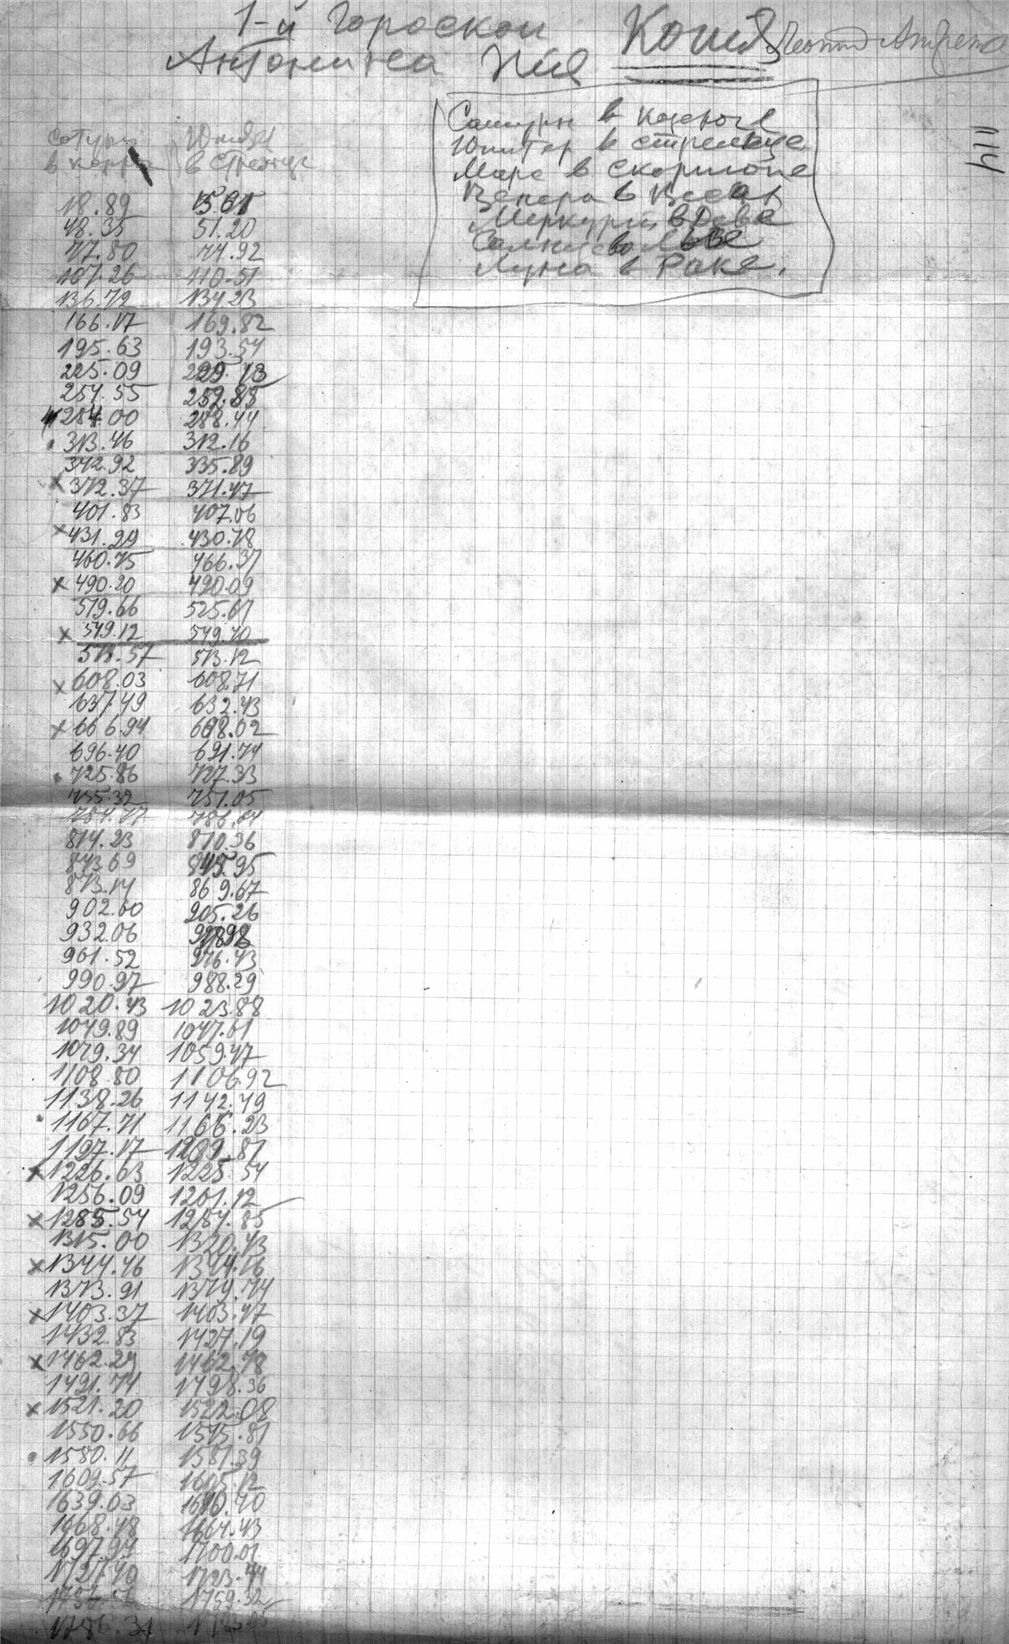 1-й Гороскоп
Антонина Пия Копия
Сатурн в Козероге
Юпитер в стрельце
Марс в Скорпионе
Венера в Весах
Меркурий в Деве
Солнце во Льве
Луна в Раке.
114
Сатурн Юпитер
в козер в стрельце
18.89
48.35 51.20
77.80 74.92
107.26 110.51
136.72 134.23
166.17 169.82
195.63 193.54
225.09 229.13
254.55 252.85
284.00 288.44
313.46 312.16
342.92 335.89
x 372.37 371.47
401.83 407.06
x 431.29 430.78
460.75 466.37
x 490.20 490.09
519.66 525.67
x 549.12 549.40
573.57 573.12
x 608.03 608.71
637.49 632.43
x 666.94 668.02
696.40 691.74
725.86 727.33
755.32 751.05
784.77
814.23 810.36
843.69 845.95
873.14 869.67
902.60 905.26
932.06
961.52 976.43
990.97 988.29
1020.43 1023.88
1049.89 1047.61
1079.34 1059.47
1108.80 1106.92
1138.26 1142.49
1167.71 1166.23
1197.17 1201.81
x 1226.63 1225.54
1256.09 1261.12
x 1285.54 1284.85
1315.00 1320.43
x 1344.46 1344.16
1373.91 1379.74
x 1403.37 1403.47
1432.83 1427.19
x 1462.29 1462.78
1491.74 1498.36
x 1521.20 1522.08
1550.66 1545.81
1580.11 1581.39
1609.57 1605.12
1639.03 1640.70
1668.48 1664.43
1697.94 1700.01
1727.40 1723.74
1759.32
1786.31